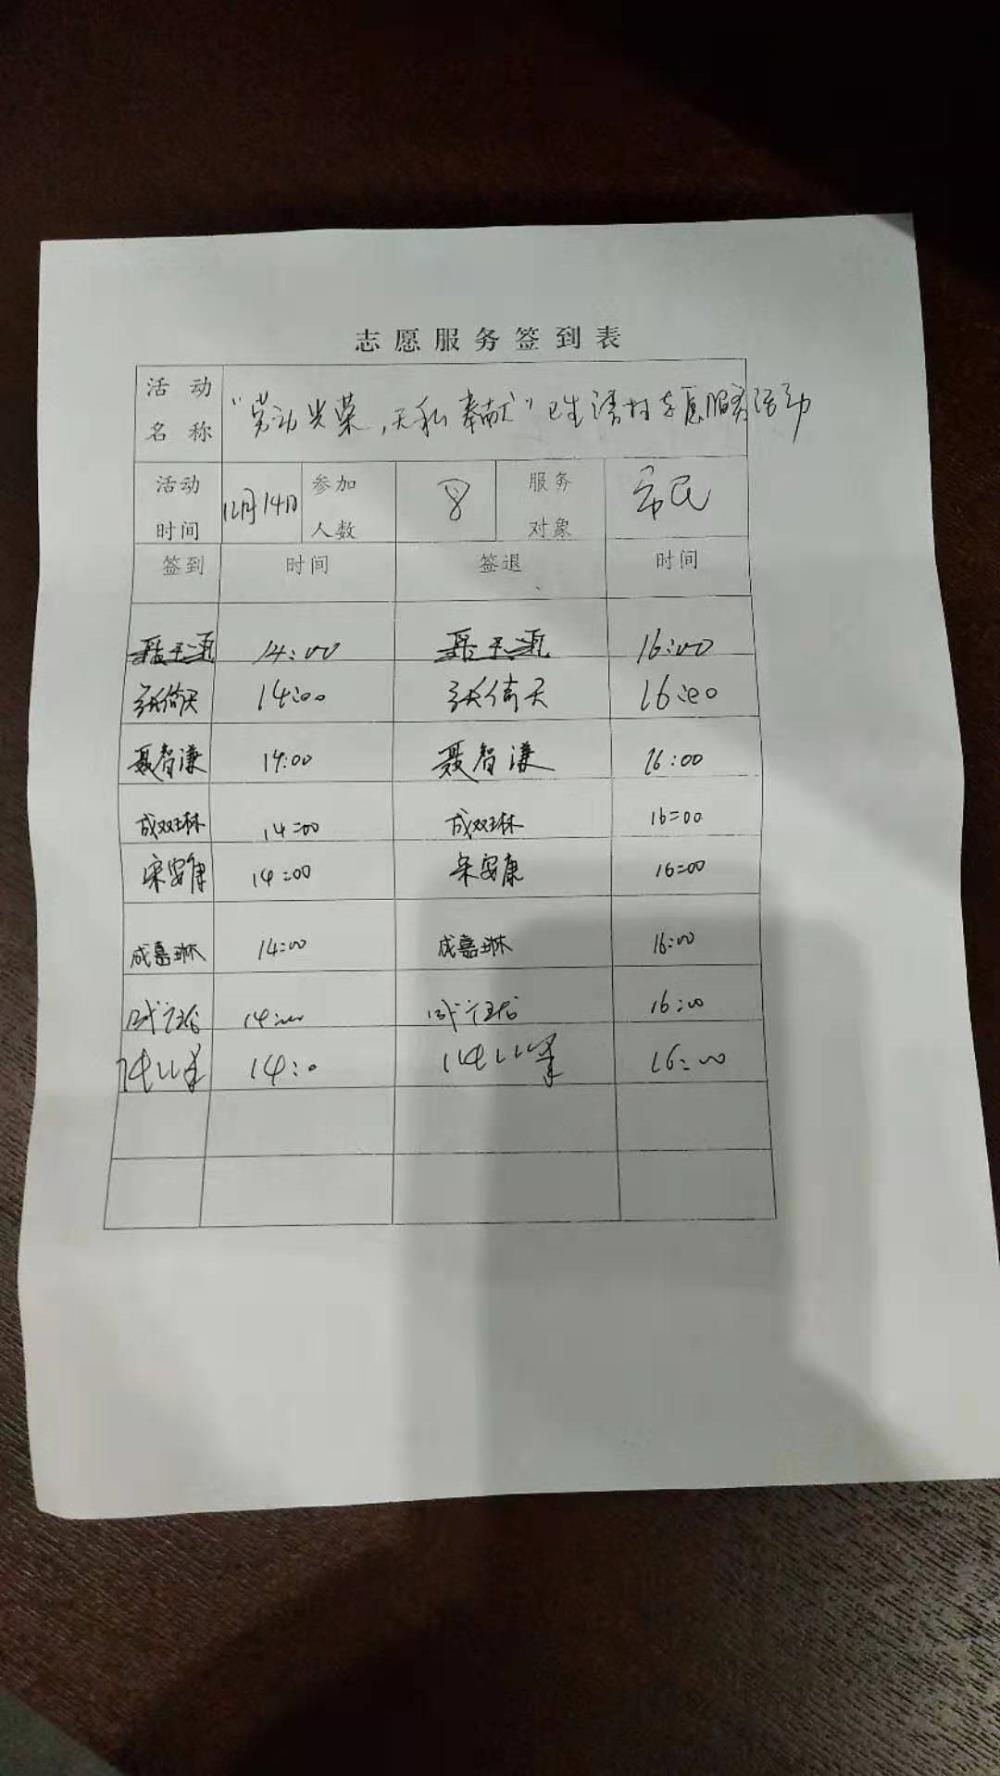 志愿服务签到表
活动名称 "劳动光荣,无私奉献"卫生清扫志愿服务活动
活动时间 12月14日 参加人数 8 服务对象 市民
签到 时间 签退 时间
14:00 16:00
张倚天 14:00 张倚天 16:00
聂智谦 14:00 聂智谦 16:00
成双琳 14:00 成双琳 16:00
宋安康 14:00 宋安康 16:00
成嘉琳 14:00 成嘉琳 16:00
14:00 16:00
14:0 16:00